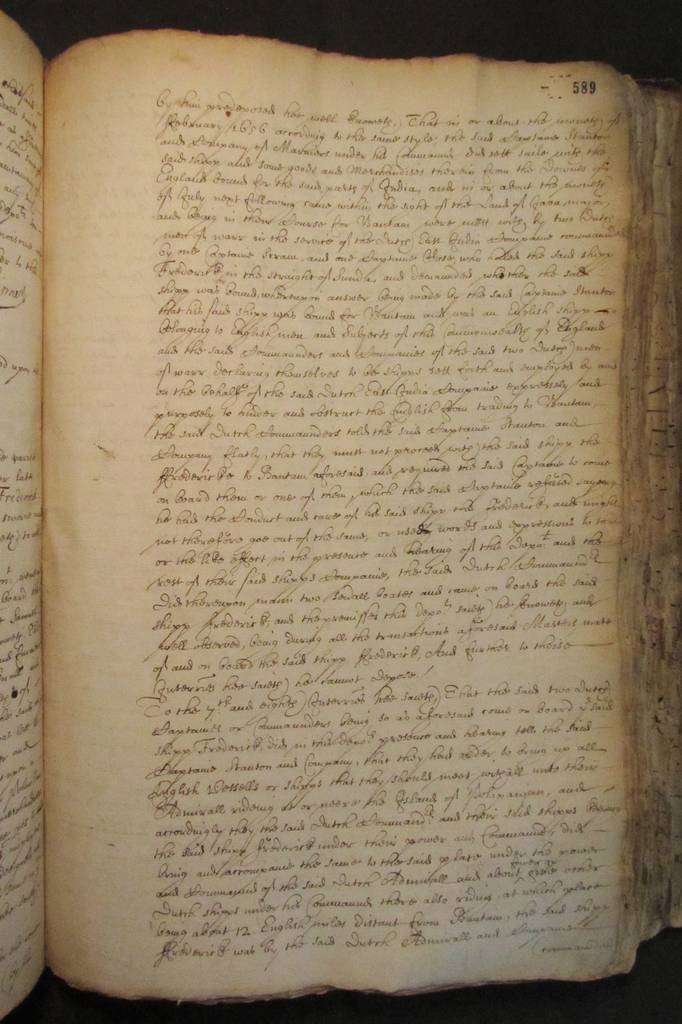 589
by him predeposed hee well knoweth, That in or about the moneth of
ffebruary 1656 according to the same style, the said Captaine Stanton
and Company of Marriners under his Command did sett saile with the
said shipp and some goods and Merchandizes therein from the Downes of
England bound for the said parts of India, and in or about the moneth
of July next following came within the sight of the Land of Java major,
and being in their Course for Bantam, were mett with by two Dutch
men of warr in the service of the Dutch East India Companie commanded
by one Captaine and one Captaine who haled the said shipp
Frederick in the straight of Sunda, and demaunded, whether the said
shipp was bound, whereupon answer being made by the said Captaine Stanton
that his said shipp was bound for Bantam and was an English shipp
belonging to English men and Subjects of this Commonwealth of England
and the said Commanders and Companies of the said two Dutch men
of warr declaring themselves to be shipps sett forth and employed by and
on the behalfe of the said Dutch East India Companie expressely and
purposely to hinder and obstruct the English from trading to Bantam
the said Dutch Commaunders told the said Captaine Stanton and
Company flatly, that they must not proceed with the said shipp the
ffrederick to Bantam aforesaid, and required the said Captaine to come
on board them or one of them, which the said Captaine refused saying
he had the Conduct and care of his said shipp the Frederick, and might
not therefore goe out of the same, or used words and expressions to
or the like effect in the presence and hearing of this depont and the
rest of their said shipps Companie, the said Dutch Commaunders
did thereupon mann two small boates and came on board the said
shipp Frederick, and the premisses this depot saieth he knoweth, and
well observed, being during all the transactions aforesaid Masters mate
of and on board the said shipp ffrederick, And further to these
Interries hee saieth he cannot depose.
To the 7th and eighth Interries hee saieth, That the said two dutch
Captaines or Commaunders being so as aforesaid come on board ye said
shipp Frederick, did in this depots presence and hearing tell the said
Captaine Stanton and Company, that they had order to bring up all
English Vessells or shipps that they should meet withall unto their
Admirall rideing at or neere the Island of and
accordingly they the said Dutch Commandrs and their said shipps
the said shipp Frederick under their power and Command, did
bring and accompanie the same to the said place under the power
and Command of the said Dutch Admirall and about other
Dutch shipps under his Command there also riding, at which place
being about 12 English miles distant from Bantam, the said shipp
ffrederick was by the said Dutch Admirall and Companie